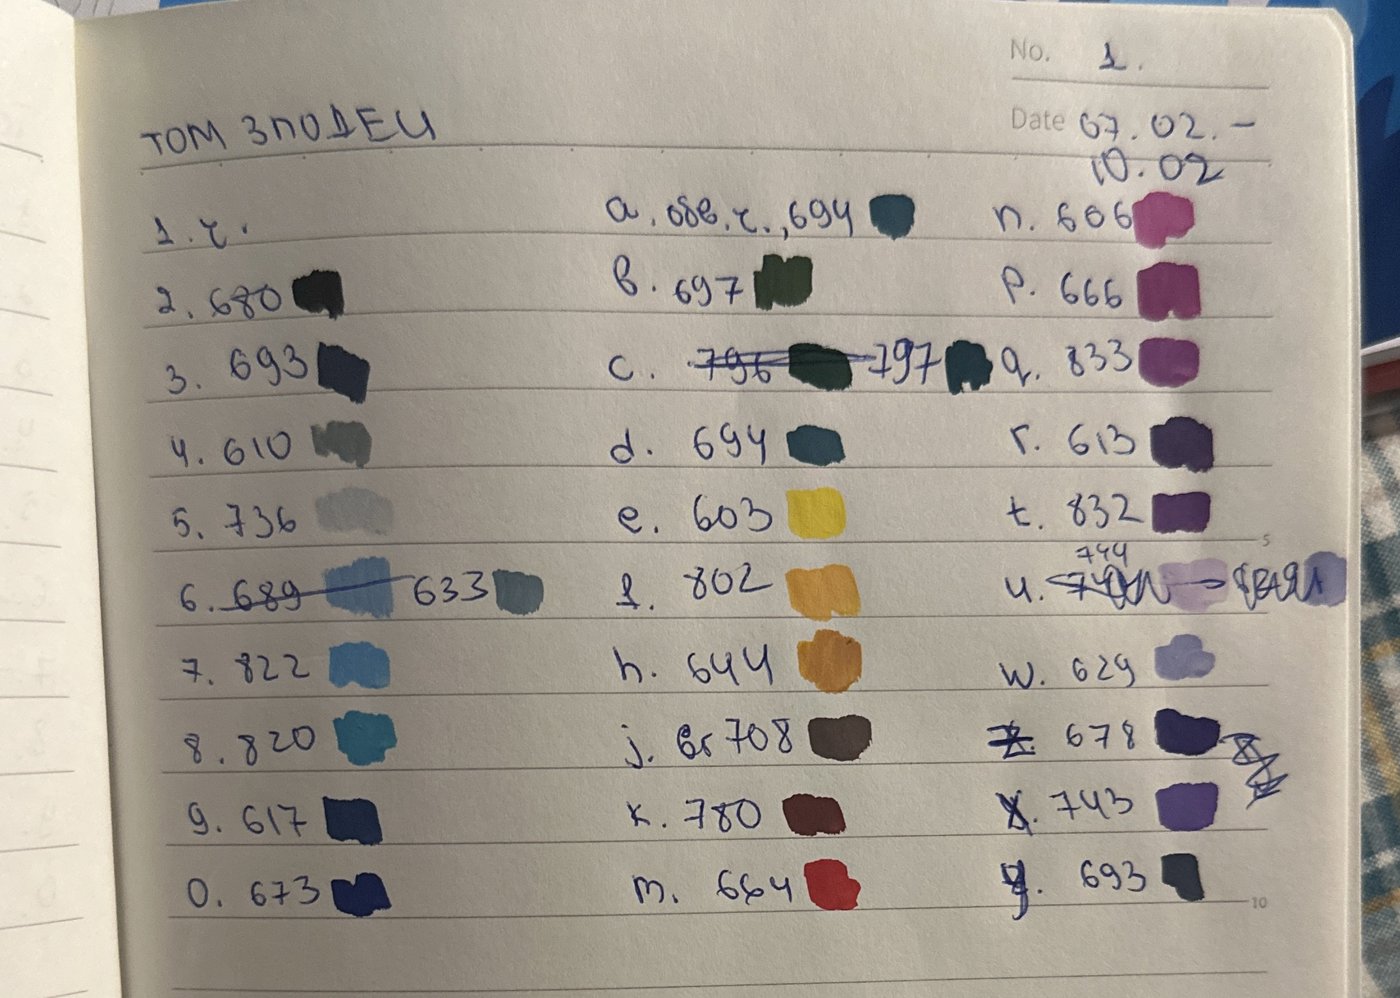 No. 1.
ТОМ ЗЛОДЕЦ
Date 07.02. -
10.02
1. ч.
2. 680
3. 693
4. 610
5. 736
6. 689 633
7. 822
8. 820
9. 617
0. 673
a. обв. ч., 694
b. 697
c. 796 797
d. 694
e. 603
f. 802
h. 644
j. 708
k. 780
m. 664
n. 606
p. 666
q. 833
r. 613
t. 832
744
u.
w. 629
z. 678
x. 743
y. 693
5
10